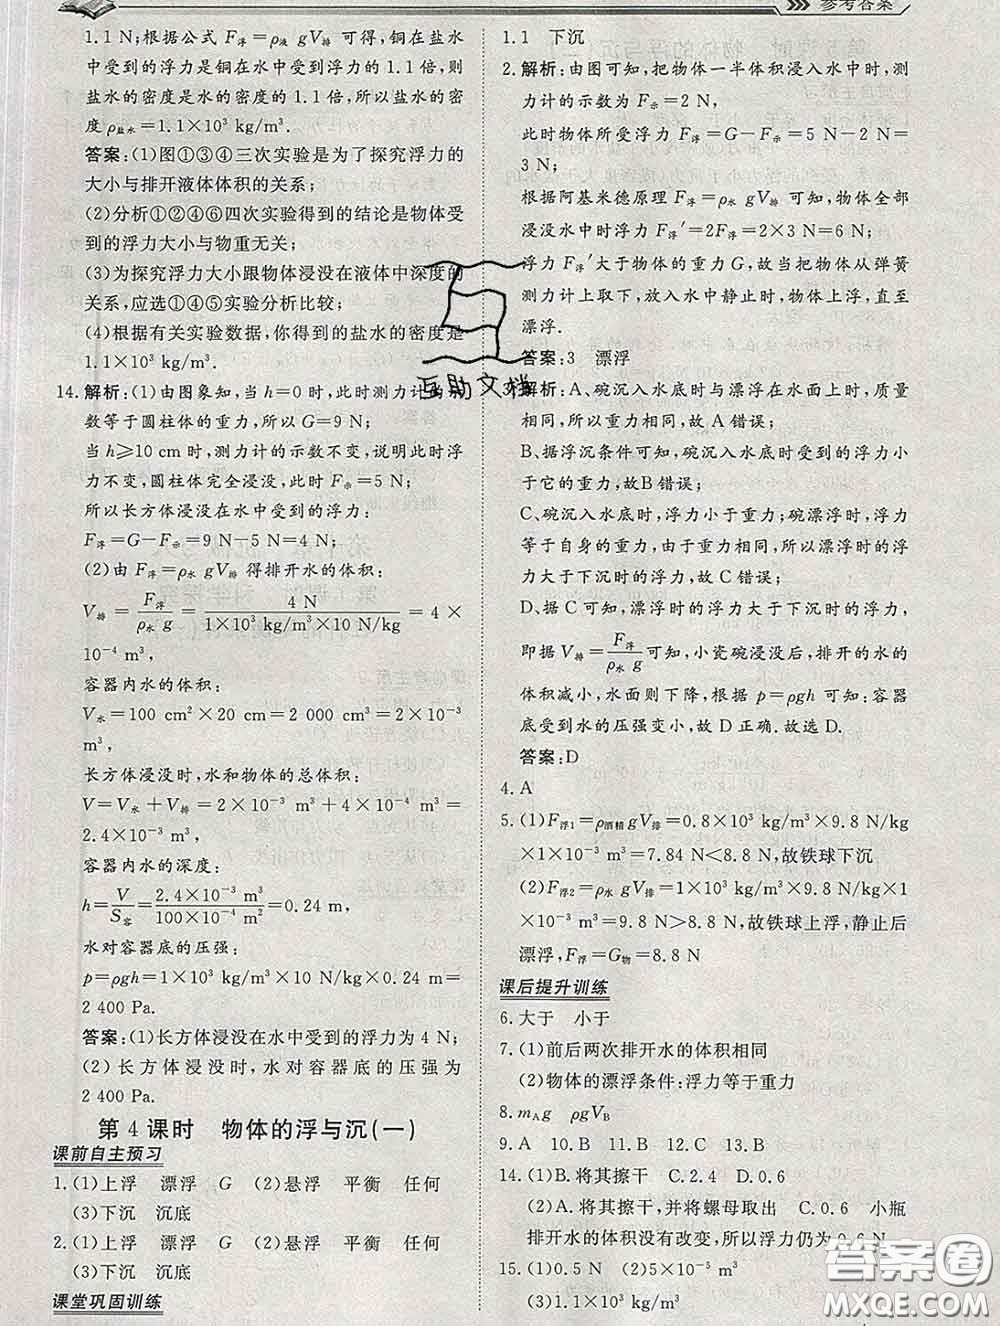 参考答案
1.1 N;根据公式 F浮=ρ液 gV排 可得,铜在盐水
中受到的浮力是铜在水中受到浮力的 1.1 倍,则
盐水的密度是水的密度的 1.1 倍,所以盐水的密
度 ρ盐水=1.1×10³ kg/m³.
答案:(1)图①③④三次实验是为了探究浮力的
大小与排开液体体积的关系;
(2)分析①②④⑥四次实验得到的结论是物体受
到的浮力大小与物重无关;
(3)为探究浮力大小跟物体浸没在液体中深度的
关系,应选①④⑤实验分析比较;
(4)根据有关实验数据,你得到的盐水的密度是
1.1×10³ kg/m³.
14.解析:(1)由图象知,当 h=0 时,此时测力计的示
数等于圆柱体的重力,所以 G=9 N;
当 h≥10 cm 时,测力计的示数不变,说明此时浮
力不变,圆柱体完全浸没,此时 F示=5 N;
所以长方体浸没在水中受到的浮力:
F浮=G-F示=9 N-5 N=4 N;
(2)由 F浮=ρ水 gV排 得排开水的体积:
V排=F浮/(ρ水 g)=4 N/(1×10³ kg/m³×10 N/kg)=4×
10⁻⁴ m³,
容器内水的体积:
V水=100 cm²×20 cm=2 000 cm³=2×10⁻³
m³,
长方体浸没时,水和物体的总体积:
V=V水+V排=2×10⁻³ m³+4×10⁻⁴ m³=
2.4×10⁻³ m³,
容器内水的深度:
h=V/S容=(2.4×10⁻³ m³)/(100×10⁻⁴ m²)=0.24 m,
水对容器底的压强:
p=ρgh=1×10³ kg/m³×10 N/kg×0.24 m=
2 400 Pa.
答案:(1)长方体浸没在水中受到的浮力为 4 N;
(2)长方体浸没时,水对容器底的压强为
2 400 Pa.
第 4 课时 物体的浮与沉(一)
课前自主预习
1.(1)上浮 漂浮 G (2)悬浮 平衡 任何
(3)下沉 沉底
2.(1)上浮 漂浮 G (2)悬浮 平衡 任何
(3)下沉 沉底
课堂巩固训练
1.1 下沉
2.解析:由图可知,把物体一半体积浸入水中时,测
力计的示数为 F示=2 N,
此时物体所受浮力 F浮=G-F示=5 N-2 N=
3 N;
根据阿基米德原理 F浮=ρ水 gV排 可知,物体全部
浸没水中时浮力 F浮′=2F浮=2×3 N=6 N;
浮力 F浮′大于物体的重力 G,故当把物体从弹簧
测力计上取下,放入水中静止时,物体上浮,直至
漂浮.
答案:3 漂浮
3.解析:A、碗沉入水底时与漂浮在水面上时,质量
相同,所以重力相同,故 A 错误;
B、据浮沉条件可知,碗沉入水底时受到的浮力小
于它的重力,故B 错误;
C、碗沉入水底时,浮力小于重力;碗漂浮时,浮力
等于自身的重力,由于重力相同,所以漂浮时浮力
大于下沉时的浮力,故 C 错误;
D、据 C 可知,漂浮时的浮力大于下沉时的浮力,
即据 V排=F浮/(ρ水 g)可知,小瓷碗浸没后,排开的水的
体积减小,水面则下降,根据 p=ρgh 可知:容器
底受到水的压强变小,故 D 正确.故选 D.
答案:D
4.A
5.(1)F浮1=ρ酒精 gV排=0.8×10³ kg/m³×9.8 N/kg
×1×10⁻³ m³=7.84 N<8.8 N,故铁球下沉
(2)F浮2=ρ水 gV排=1×10³ kg/m³×9.8 N/kg×1
×10⁻³ m³=9.8 N>8.8 N,故铁球上浮,静止后
漂浮,F浮=G物=8.8 N
课后提升训练
6.大于 小于
7.(1)前后两次排开水的体积相同
(2)物体的漂浮条件:浮力等于重力
8.mAg ρgVB
9.A 10.B 11.B 12.C 13.B
14.(1)B.将其擦干 C.2.4 D.0.6
(2)A.将其擦干,并将螺母取出 C.0.6 小瓶
排开水的体积没有改变,所以浮力仍为 0.6 N
15.(1)0.5 (2)5×10⁻⁵ m³
(3)1.1×10³
互助文档
答案圈
MXQE.COM